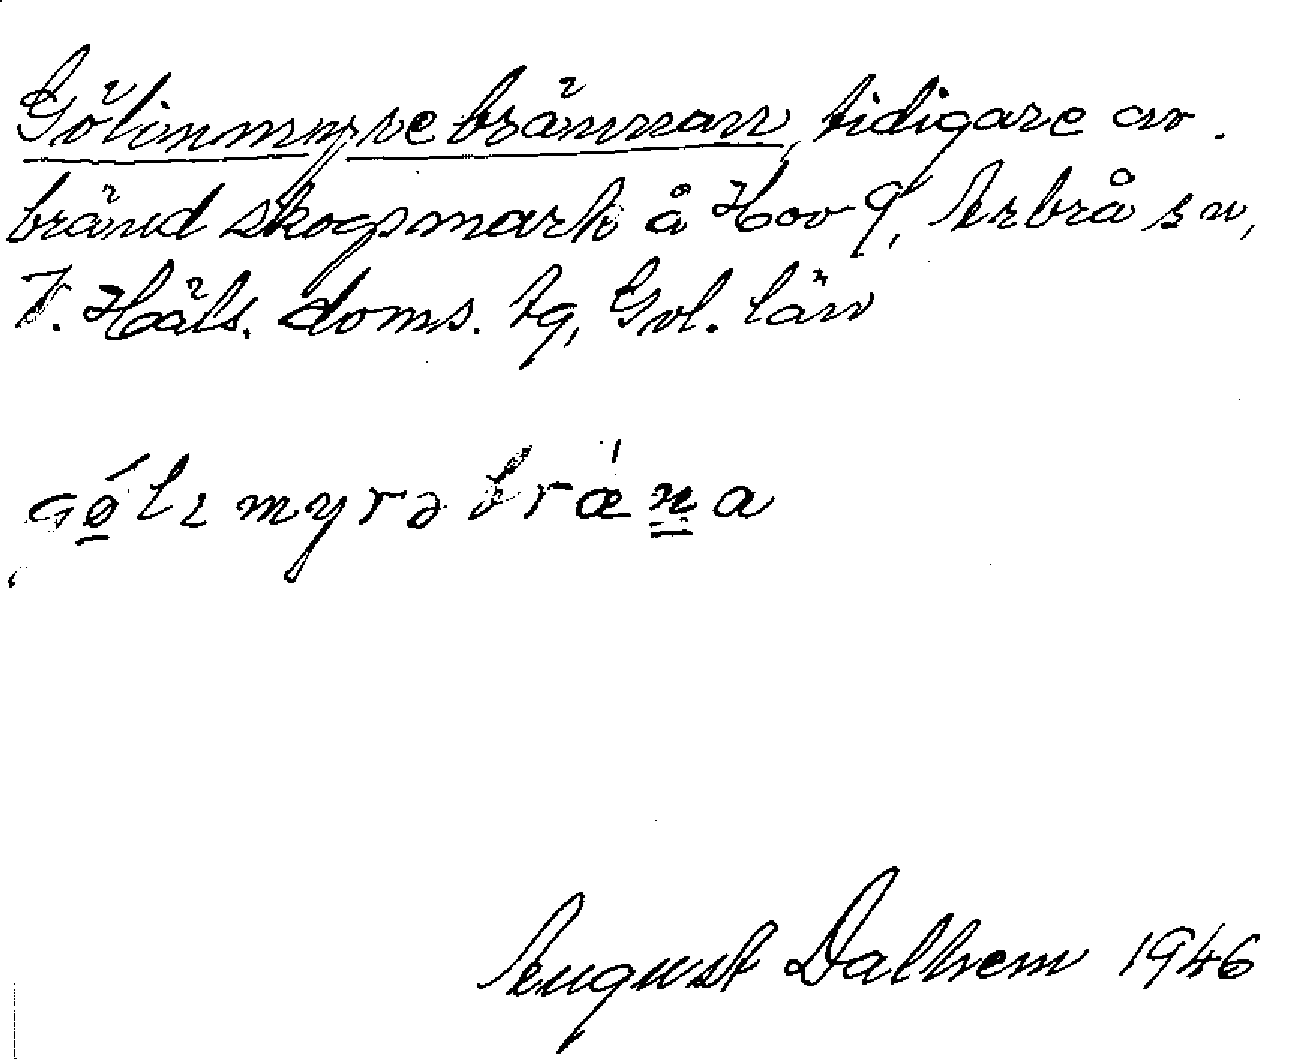 Gölimmyrebrännan, tidigare av.
bränd skogsmark å Hov 9, Arbrå sn,
V. Häls. doms. tg, Gvl. län
Gölımyrəbræna
August Dalhem 1946